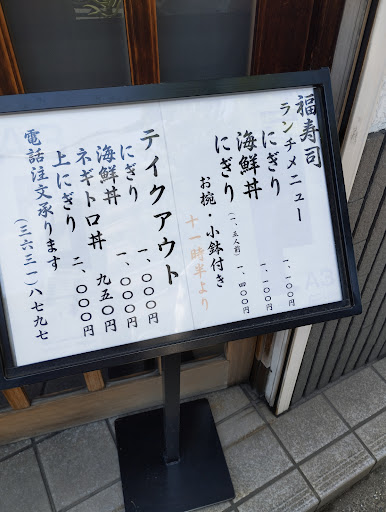 福寿司
ランチメニュー
にぎり 一、一〇〇円
海鮮丼 一、一〇〇円
にぎり (一、五人前) 一、四〇〇円
お椀・小鉢付き
十一時半より
テイクアウト
にぎり 一、〇〇〇円
海鮮丼 一、〇〇〇円
ネギトロ丼 九五〇円
上にぎり 二、〇〇〇円
電話注文承ります (三六三一)八七九七
A3